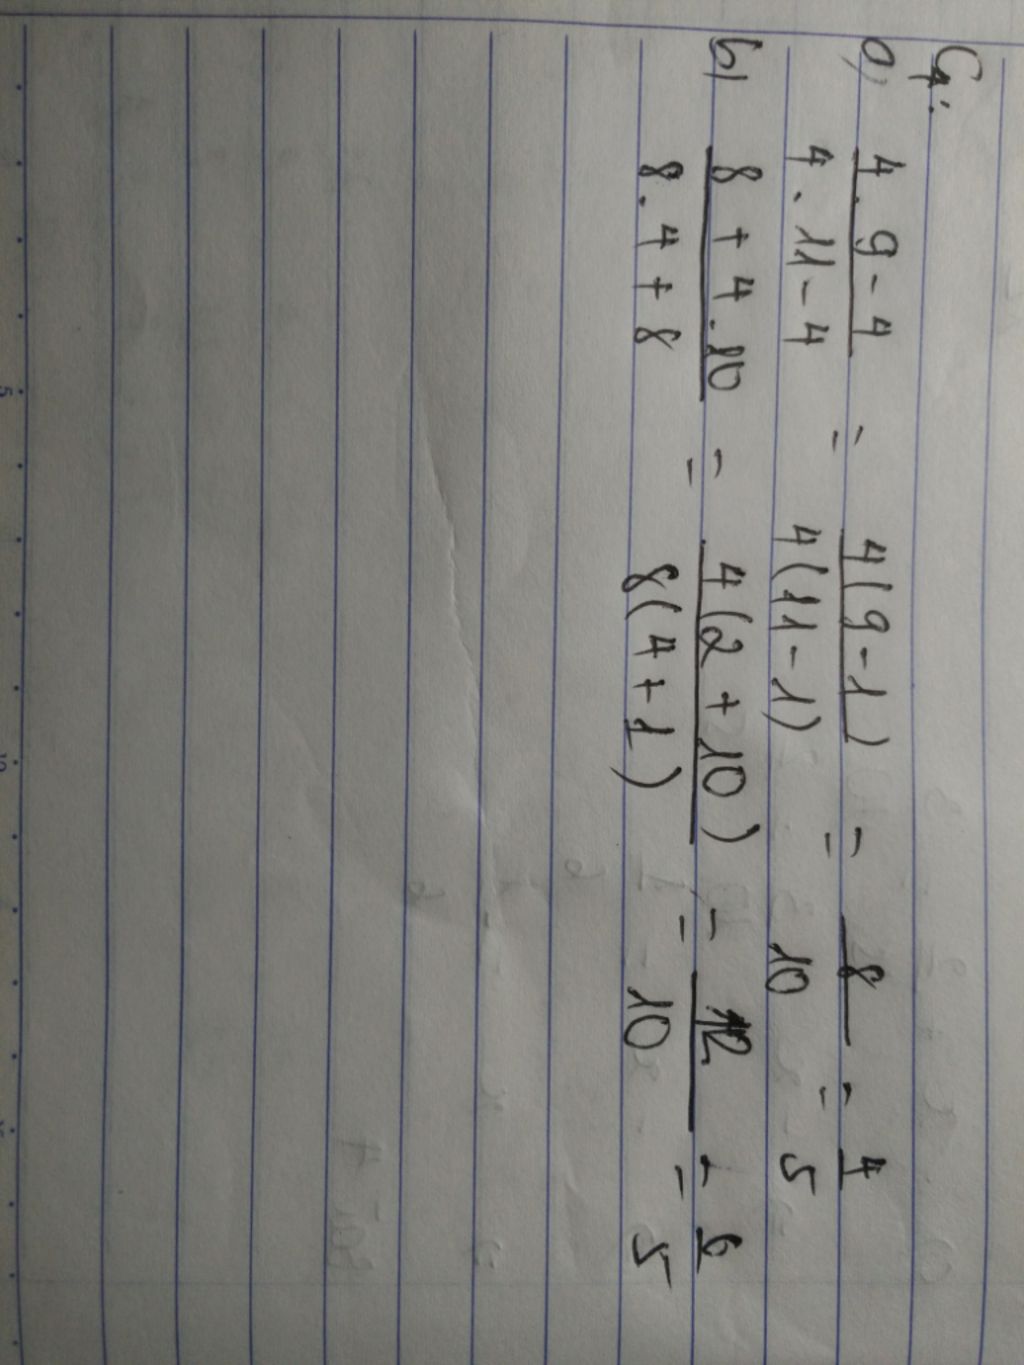 G:
a) 4.9-4/4.11-4 = 4(9-1)/4(11-1) = 8/10 = 4/5
b) 8+4.10/8.4+8 = 4(2+10)/8(4+1) = 12/10 = 6/5
5
10